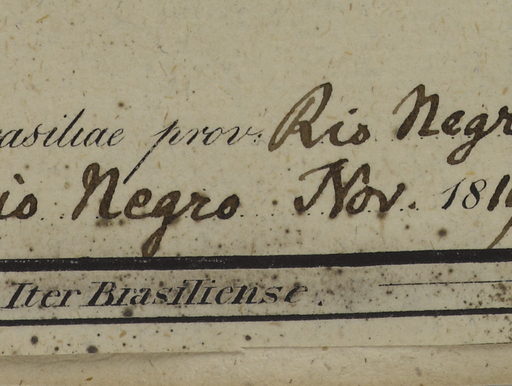 rasiliae prov. Rio Negr
io Negro Nov. 181
Iter Brasiliense.